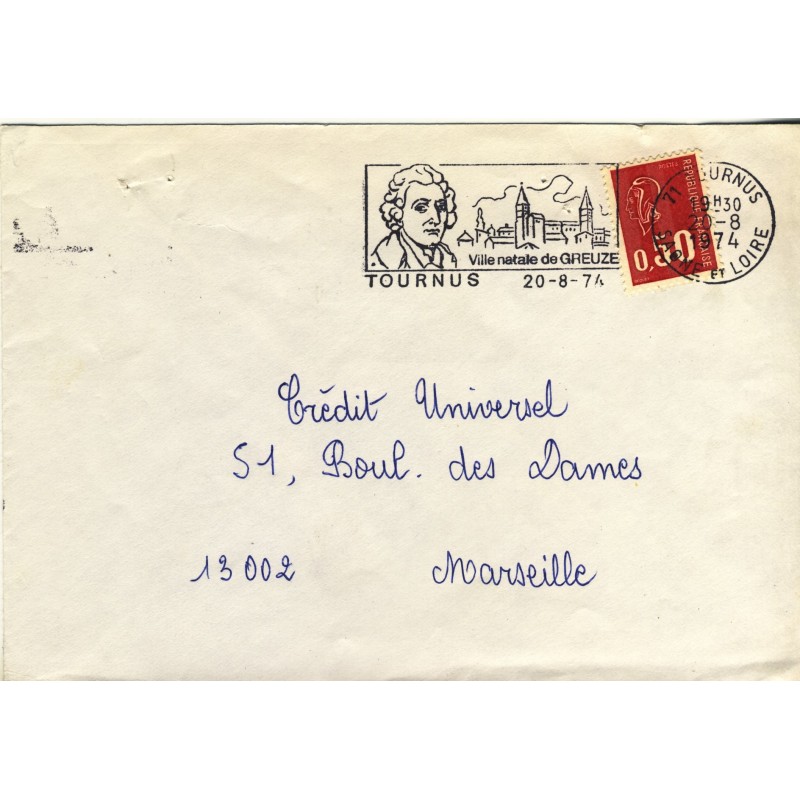 Ville natale de GREUZE
TOURNUS 20-8-74
REPUBLIQUE FRANÇAISE
0,50
71 TOURNUS
9H30
20-8
1974
SAONE ET LOIRE
Crédit Universel
51, Boul. des Dames
13002 Marseille